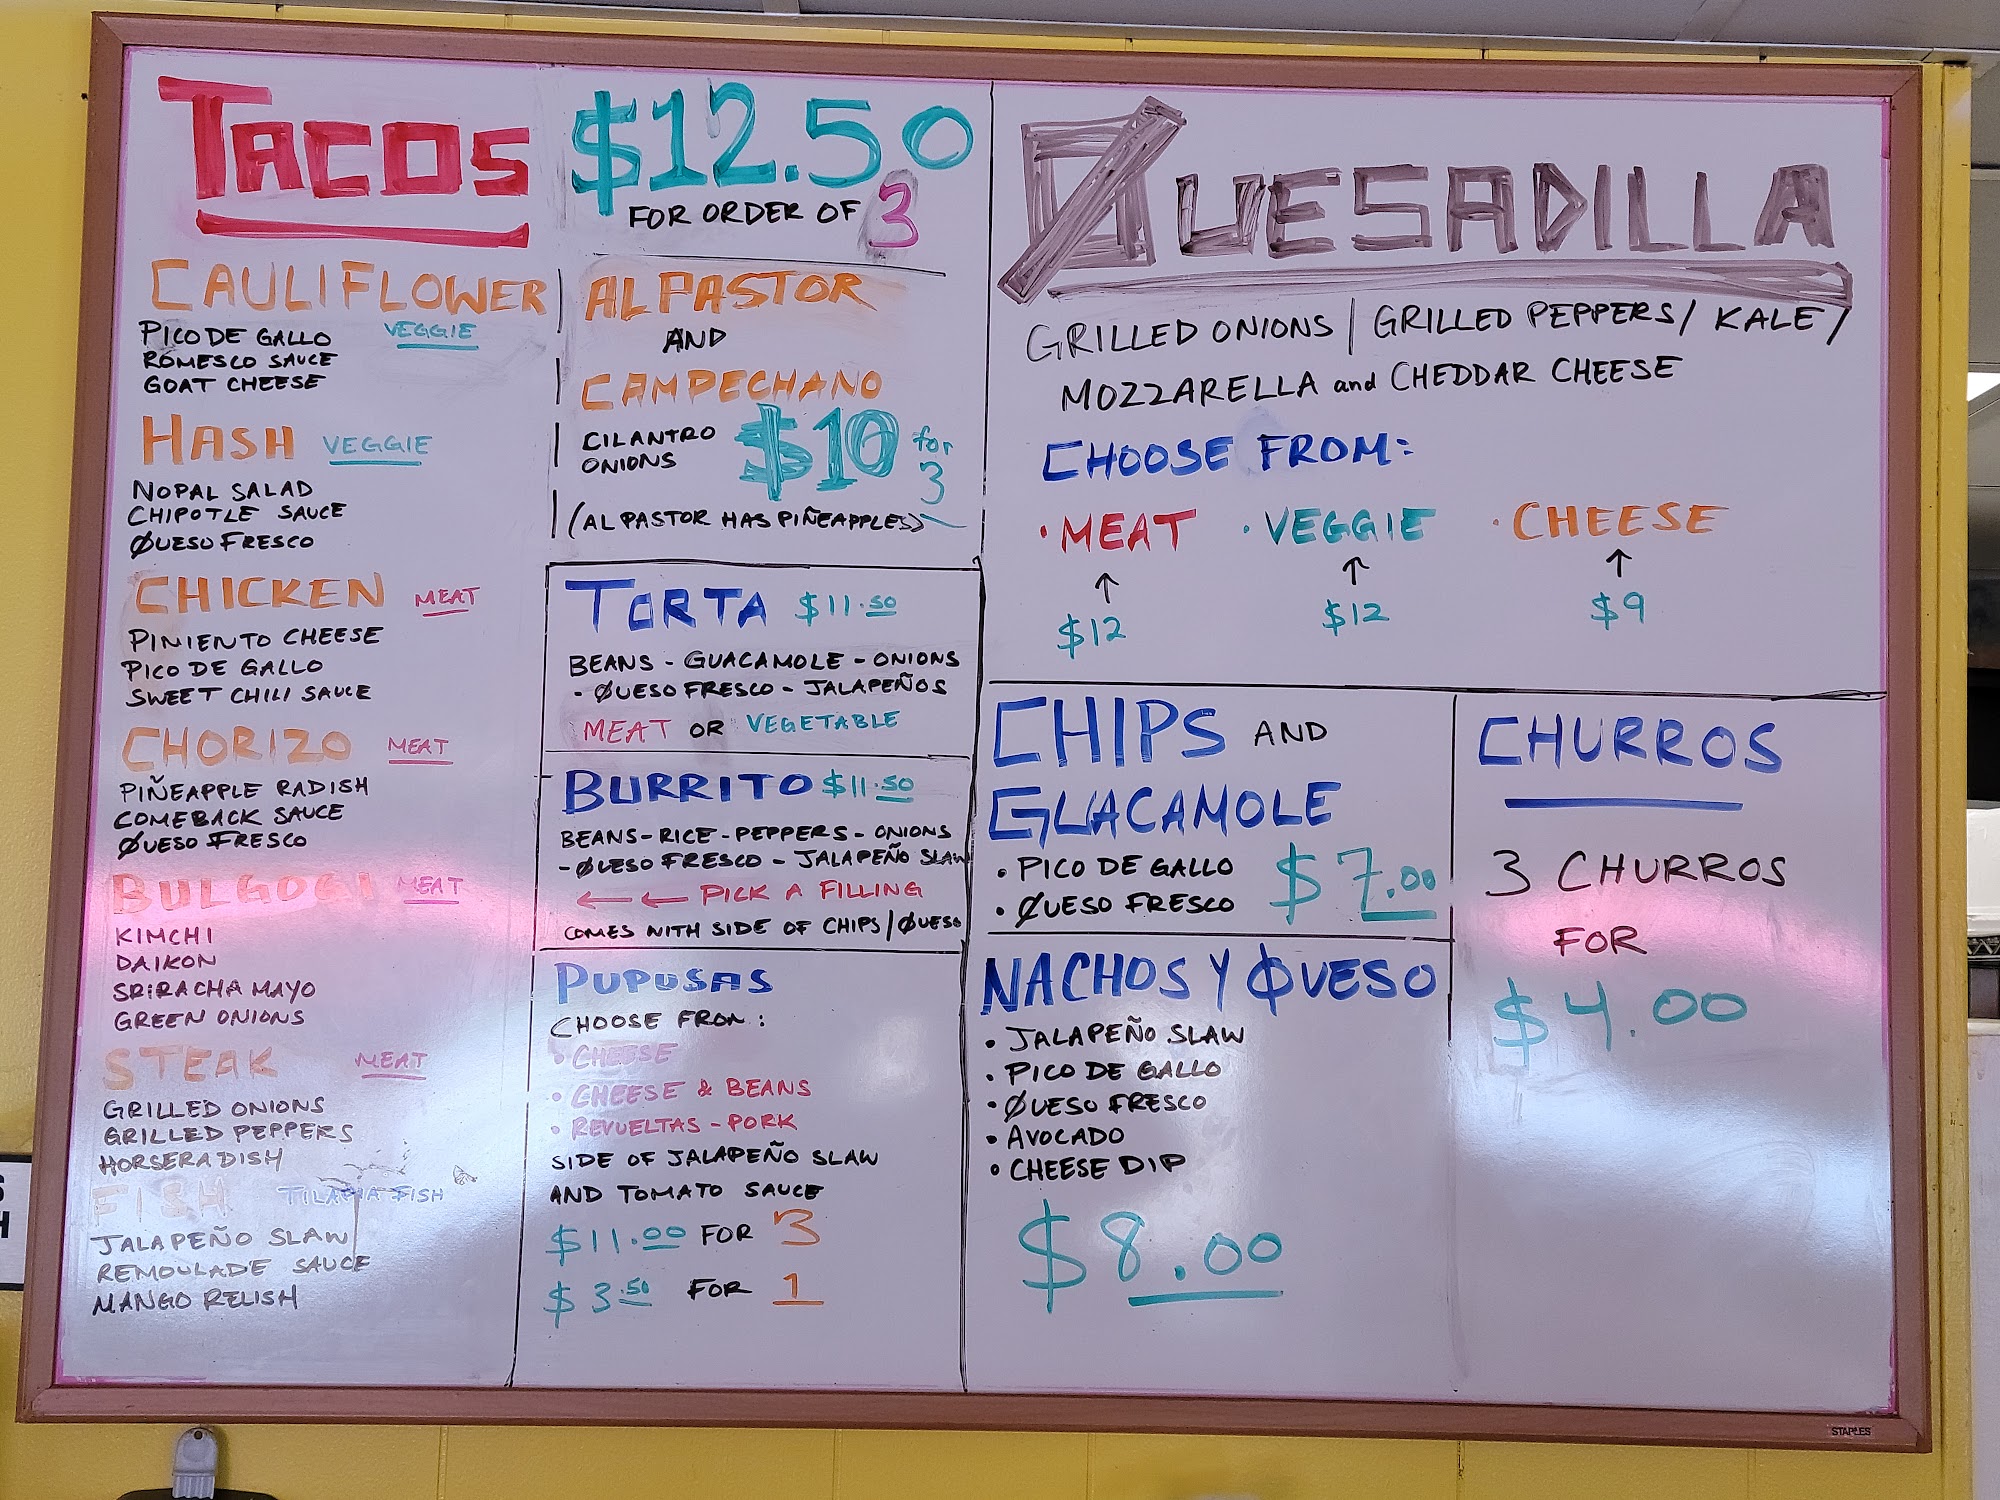 TACOS
$12.50
FOR ORDER OF 3
CAULIFLOWER
PICO DE GALLO VEGGIE
ROMESCO SAUCE
GOAT CHEESE
HASH VEGGIE
NOPAL SALAD
CHIPOTLE SAUCE
QUESO FRESCO
CHICKEN MEAT
PIMIENTO CHEESE
PICO DE GALLO
SWEET CHILI SAUCE
CHORIZO MEAT
PIÑEAPPLE RADISH
COMEBACK SAUCE
QUESO FRESCO
BULGOGI MEAT
KIMCHI
DAIKON
SRIRACHA MAYO
GREEN ONIONS
STEAK MEAT
GRILLED ONIONS
GRILLED PEPPERS
HORSERADISH
FISH TILAPIA FISH
JALAPEÑO SLAW
REMOULADE SAUCE
MANGO RELISH
AL PASTOR
AND
CAMPECHANO
CILANTRO
ONIONS
$10 for 3
(AL PASTOR HAS PIÑEAPPLES)
TORTA $11.50
BEANS - GUACAMOLE - ONIONS
- QUESO FRESCO - JALAPEÑOS
MEAT OR VEGETABLE
BURRITO $11.50
BEANS - RICE - PEPPERS - ONIONS
- QUESO FRESCO - JALAPEÑO SLAW
← ← PICK A FILLING
COMES WITH SIDE OF CHIPS/QUESO
PUPUSAS
CHOOSE FROM:
• CHEESE
• CHEESE & BEANS
• REVUELTAS - PORK
SIDE OF JALAPEÑO SLAW
AND TOMATO SAUCE
$11.00 FOR 3
$3.50 FOR 1
QUESADILLA
GRILLED ONIONS / GRILLED PEPPERS / KALE /
MOZZARELLA and CHEDDAR CHEESE
CHOOSE FROM:
• MEAT • VEGGIE • CHEESE
↑ ↑ ↑
$12 $12 $9
CHIPS AND
GUACAMOLE
• PICO DE GALLO
• QUESO FRESCO
$7.00
NACHOS Y QUESO
• JALAPEÑO SLAW
• PICO DE GALLO
• QUESO FRESCO
• AVOCADO
• CHEESE DIP
$8.00
CHURROS
3 CHURROS
FOR
$4.00
STAPLES
S
H